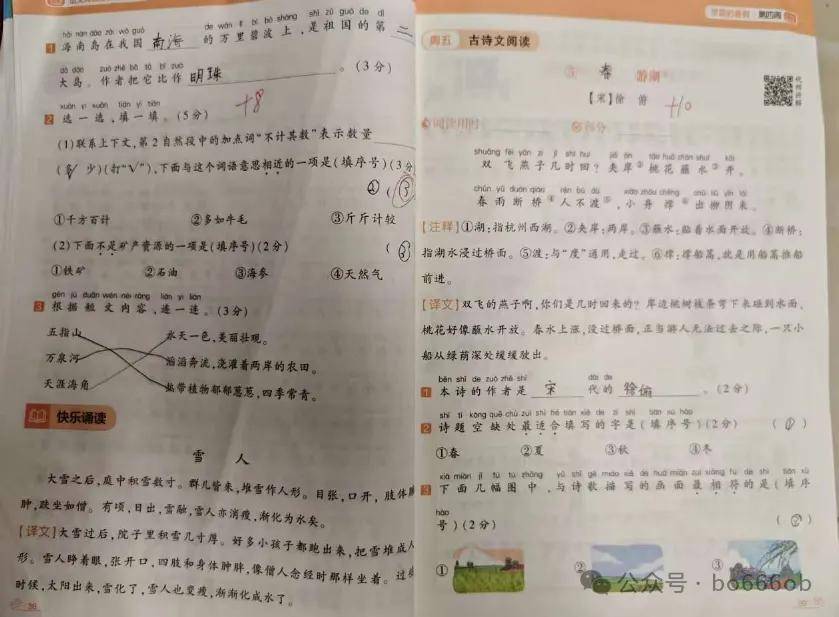 hǎi nán dǎo zài wǒ guó de wàn lǐ bì bō shàng shì zǔ guó de dì
1 海南岛在我国 南海 的万里碧波上,是祖国的第 二
dà dǎo zuò zhě bǎ tā bǐ zuò
大岛。作者把它比作 明珠 。(3分)
xuǎn yi xuǎn tián yi tián
2 选一选,填一填。(5分) +8
(1)联系上下文,第2自然段中的加点词“不计其数”表示数量
(多 少)(打“√”),下面与这个词语意思相近的一项是(填序号)(3分
② (③
①千方百计 ②多如牛毛 ③斤斤计较
(2)下面不是矿产资源的一项是(填序号)(2分) (③
①铁矿 ②石油 ③海参 ④天然气
gēn jù duǎn wén nèi róng lián yi lián
3 根据短文内容,连一连。(3分)
五指山 水天一色,美丽壮观。
万泉河 滔滔奔流,浇灌着两岸的农田。
天涯海角 热带植物郁郁葱葱,四季常青。
快乐诵读
雪 人
大雪之后,庭中积雪数寸。群儿皆来,堆雪作人形。目张,口开,肢体臃
肿,趺坐如僧。有顷,日出,雪融,雪人亦消瘦,渐化为水矣。
【译文】大雪过后,院子里积雪几寸厚。好多小孩子都跑出来,把雪堆成人
形。雪人睁着眼,张开口,四肢和身体肿胖,像僧人念经时那样坐着。过
时候,太阳出来,雪化了,雪人也变瘦,渐渐化成水了。
第四周
周五 古诗文阅读
春 游湖
【宋】徐 俯 +10
阅读用时 得分
shuāng fēi yàn zi jǐ shí huí jiā àn táo huā zhàn shuǐ kāi
双飞燕子几时回?夹岸②桃花蘸水③开。
chūn yǔ duàn qiáo rén bù dù xiǎo zhōu chēng chū liǔ yīn lái
春雨断桥④人不渡⑤,小舟撑⑥出柳阴来。
【注释】①湖:指杭州西湖。②夹岸:两岸。③蘸水:贴着水面开放。④断桥:
指湖水浸过桥面。⑤渡:与“度”通用,走过。⑥撑:撑船篙,就是用船篙推船
前进。
【译文】双飞的燕子啊,你们是几时回来的?岸边桃树枝条弯下来碰到水面,
桃花好像蘸水开放。春水上涨,没过桥面,正当游人无法过去之际,一只小
船从绿荫深处缓缓放出。
běn shī de zuò zhě shì dài de
1 本诗的作者是 宋 代的 徐俯 。(2分)
shī tí kòng quē chù zuì shì hé tián xiě de zì shì tián xù hào
2 诗题空缺处最适合填写的字是(填序号)(2分) (①)
①春 ②夏 ③秋 ④冬
xià miàn jǐ fú tú zhōng yǔ shī gē miáo xiě de huà miàn zuì xiāng fú de shì tián xù
3 下面几幅图中,与诗歌描写的画面最相符的是(填序
hào
号)(2分) (②)
① ② ③
公众号·bo666ob